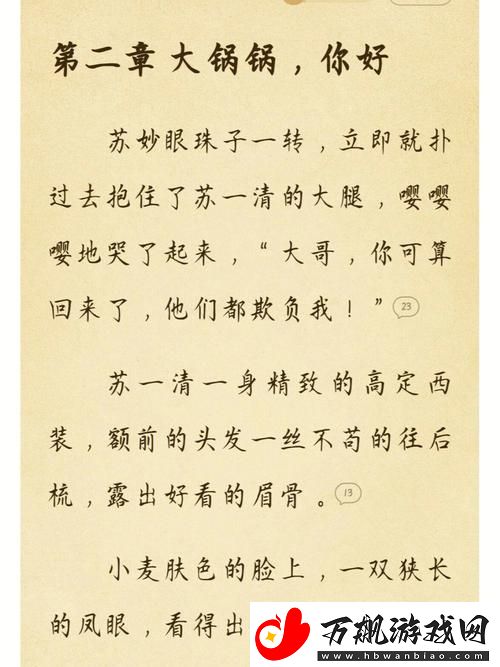 第二章 大锅锅，你好
苏妙眼珠子一转，立即就扑
过去抱住了苏一清的大腿，嘤嘤
嘤地哭了起来，“大哥，你可算
回来了，他们都欺负我！”23
苏一清一身精致的高定西
装，额前的头发一丝不苟的往后
梳，露出好看的眉骨。13
小麦肤色的脸上，一双狭长
的凤眼，看得出
万飙游戏网
www.hbwanbiao.com